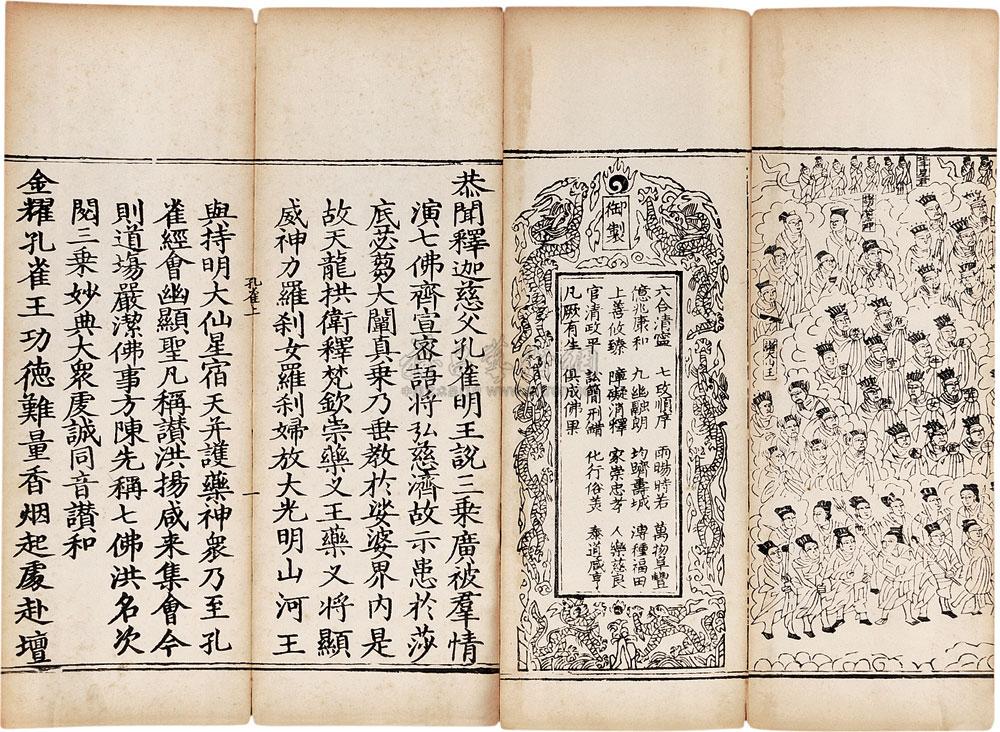 御製
六合清寧　七政順序　雨暘時若　萬物阜豐
億兆康和　九幽融朗　均躋壽域　溥種福田
上善攸臻　障礙消釋　家崇忠孝　人樂慈良
官清政平　訟簡刑措　化行俗美　泰道咸亨
凡厥有生　俱成佛果
恭聞釋迦慈父孔雀明王說三乗廣被羣情
演七佛齊宣宻語將弘慈濟故示患於莎
底苾蒭大闡真乗乃垂教於娑婆界内是
故天龍拱衛釋梵欽崇藥义王藥义将顯
威神力羅刹女羅刹婦放大光明山河王
孔雀上
一
與持明大仙星宿天并護藥神衆乃至孔
雀經會幽顯聖凡稱讃洪揚咸来集會今
則道塲嚴潔佛事方陳先稱七佛洪名次
閱三乗妙典大衆䖍誠同音讃和
金耀孔雀王功德難量香烟起處赴壇